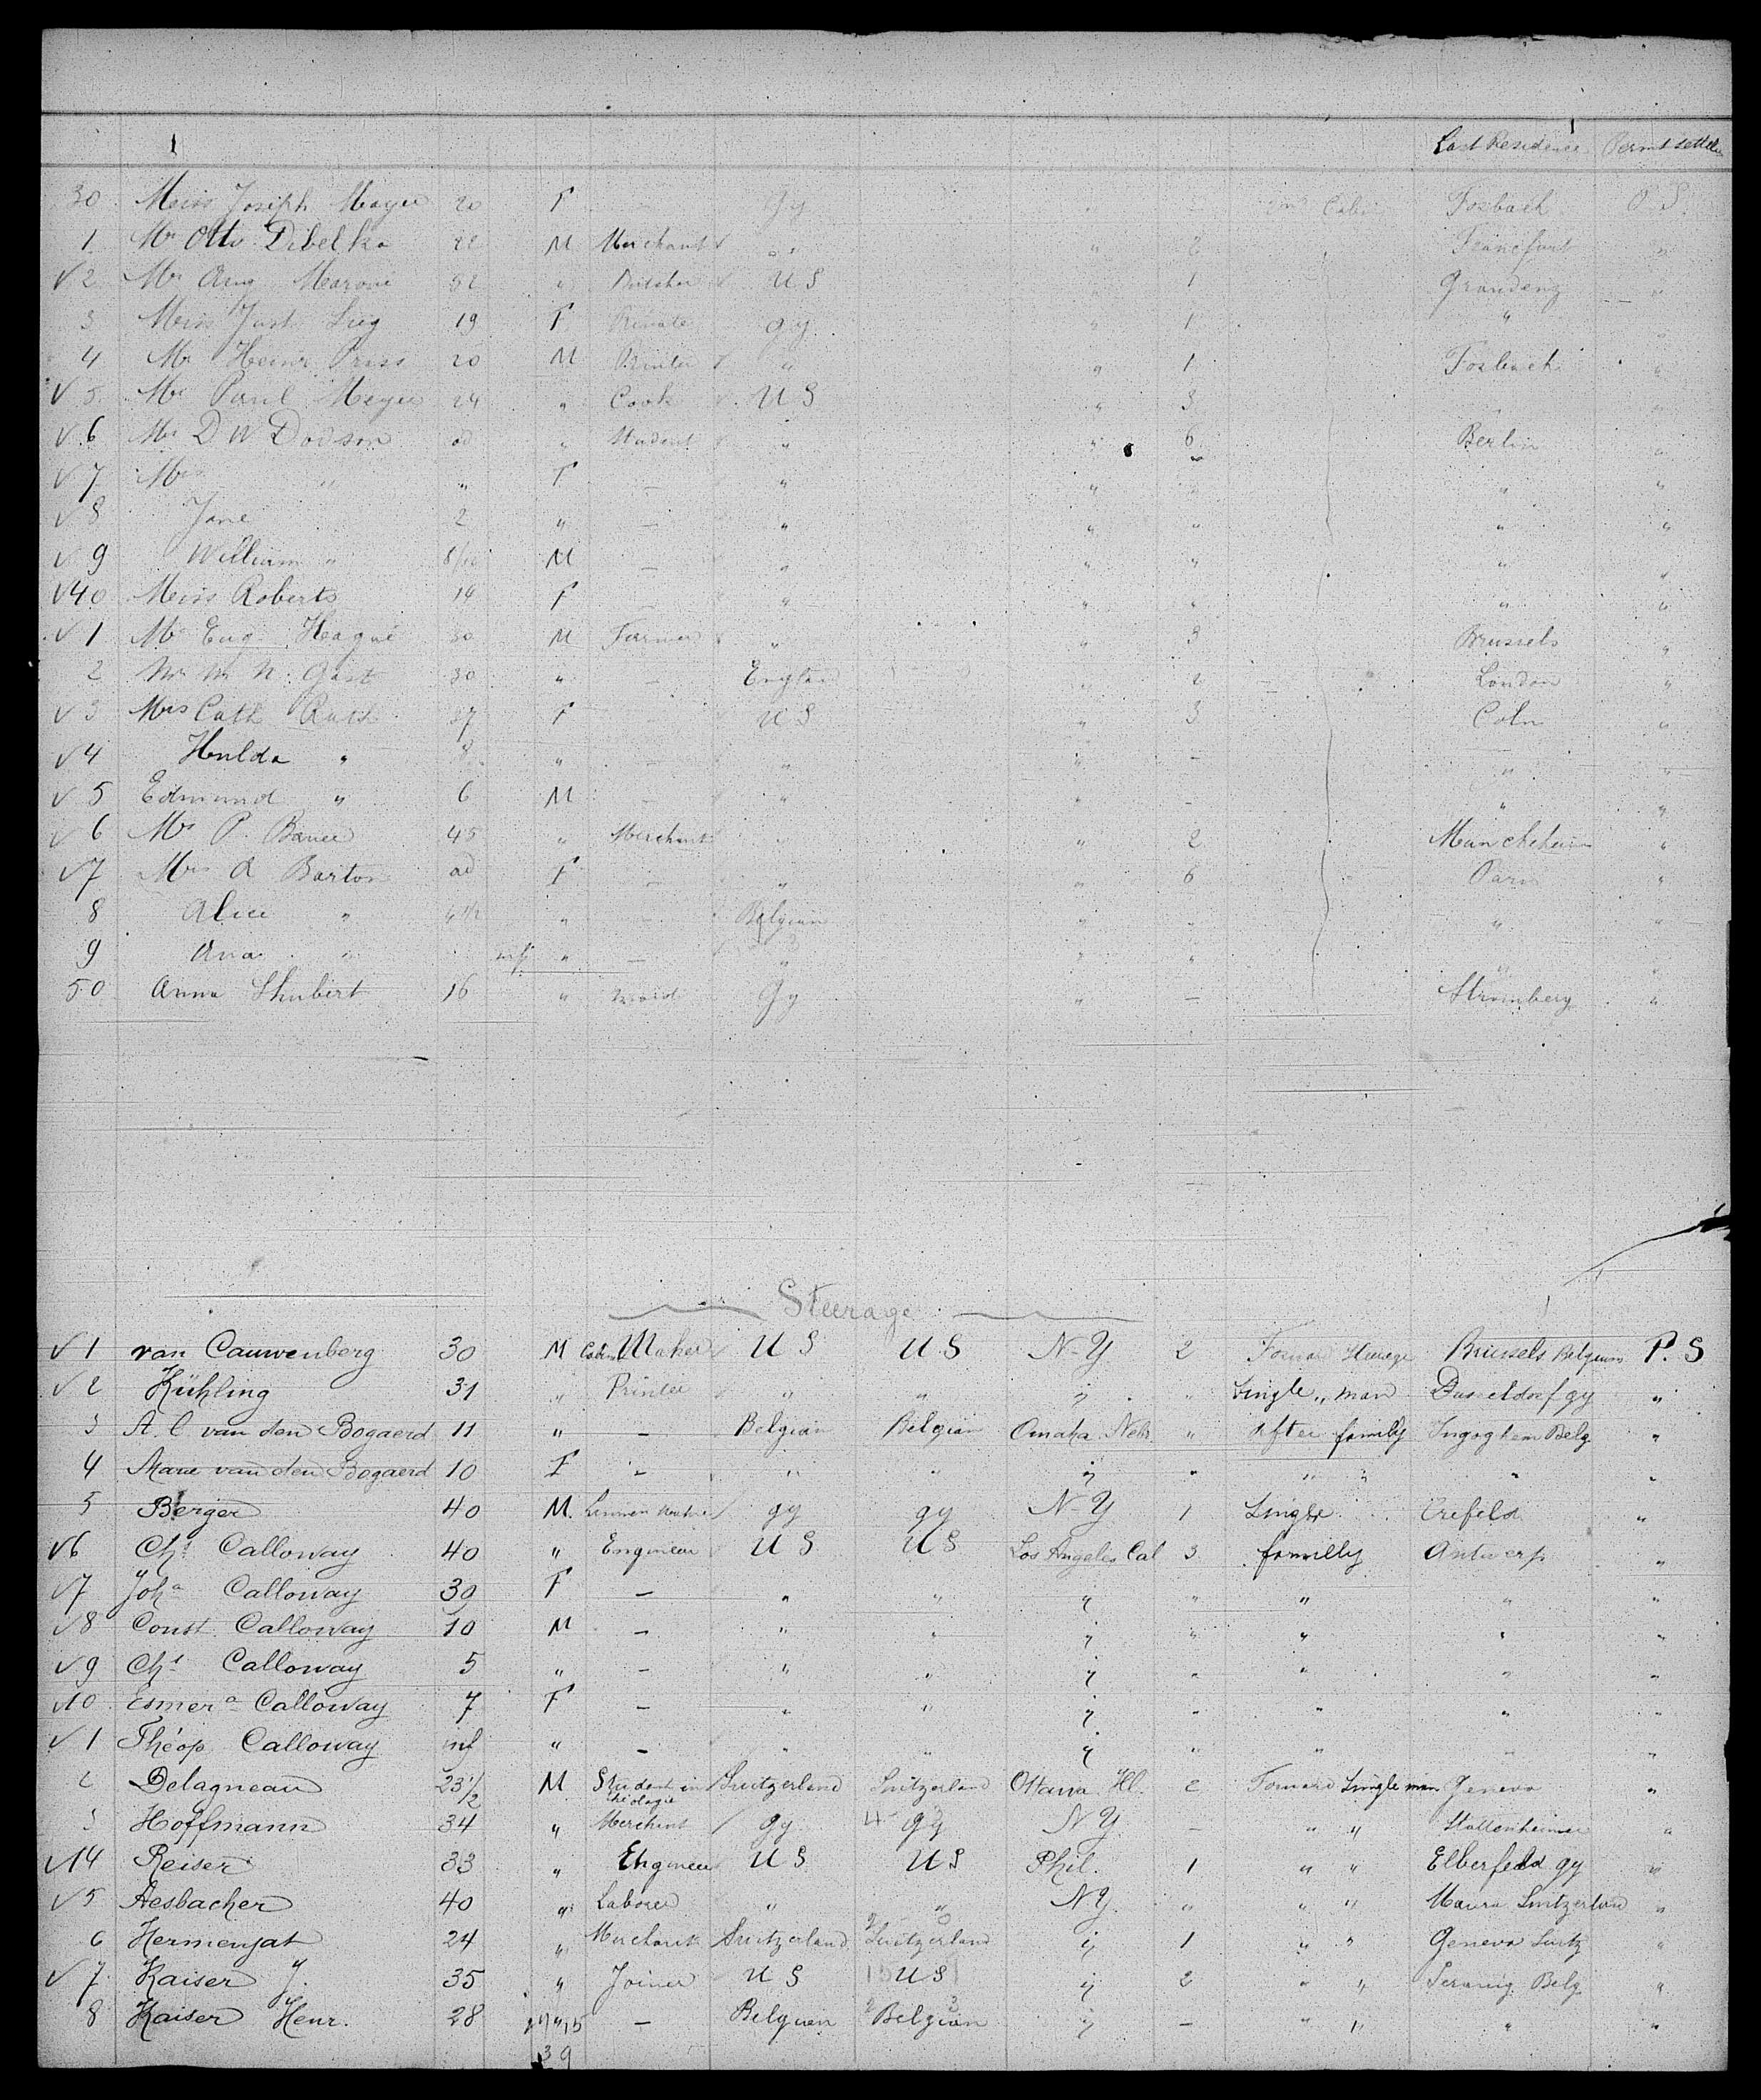 Last Residence Permt settlers
30 Miss Joseph Mayer 20 F — Gy " — Cabin Forbach P.S.
1 Mr Otto Dibelka 22 M Merchant " " 2 Francfurt "
√ 2 Mr Aug Marovie 32 " Butcher U S " 1 Graudenz "
3 Miss Just Sieg 19 F Private gy " 1 " "
4 Mr Heinr Priss 20 M Printer " " 1 Forbach "
√ 5 Mr Paul Meyer 24 " Cook U S " 3 " "
√ 6 Mr D W Dodson ad " Student " " 6 Berlin "
√ 7 Mrs " " F — " " " " "
√ 8 Jane 2 " — " " " " "
√ 9 William " 8/12 M — " " " " "
√ 40 Miss Roberts 14 F " " " " "
√ 1 Mr Eug. Hagué 30 M Farmer " " 3 Brussels "
2 Mr W N. Gast 30 " — England " 2 London "
√ 3 Mrs Cath Ruth 37 F U S " 3 Coln "
√ 4 Hulda " 8 " — " " — " "
√ 5 Edmund " 6 M — " " — " "
√ 6 Mr P. Bauer 45 " Merchant " " 2 Manchheim "
√ 7 Mrs A Barton ad F — " " 6 Paris "
8 Alice " 4 1/2 " — Belgian " " " "
9 Ana " inf " — " " " " "
50 Anna Shubert 16 " maid Gy " — Stromberg "
Steerage
√ 1 van Cauwenberg 30 M Cabin Maker U S U S N-Y 2 Forward Steerage Brussels Belgium P. S
√ 2 Kühling 31 " Printer " " " " Single " man Dusseldorf gy "
3 A. C van den Bogaerd 11 " — Belgian Belgian Omaha Neb " After family Ingoghem Belg "
4 Marie van den Bogaerd 10 F — " " " " " " " "
5 Berger 40 M. Linnen gy gy N-Y 1 Single Crefeld "
√6 Chs Calloway 40 " Engineer U S U S Los Angeles Cal 3 familly Antwerp "
√7 Joha Calloway 30 F — " " " " " " "
√8 Const. Calloway 10 M — " " " " " " "
√9 Chs Calloway 5 " — " " " " " " "
√10 Esmera Calloway 7 F — " " " " " " "
√ 1 Théop Calloway inf " — " " " " " " "
2 Delagneau 23 1/2 M Student in théologie Switzerland Switzerland Ottawa Ill. 2 Forward Single man Geneva "
3 Hoffmann 34 " Merchant gy 4 gy N Y. — " " "
√14 Reiser 33 " Engineer U S U S Phil. 1 " " Elberfeld gy "
√ 5 Aesbacher 40 " Laborer " " N Y. " " " Switzerland "
6 Hermenjat 24 " Merchant Switzerland Switzerland " 1 " " Geneva Switz "
√ 7 Kaiser J. 35 " Joiner U S 15 U S " 2 " " Seraing Belg "
8 Kaiser Henr. 28 " 15 — Belgian Belgian 3 " — " " " "
39